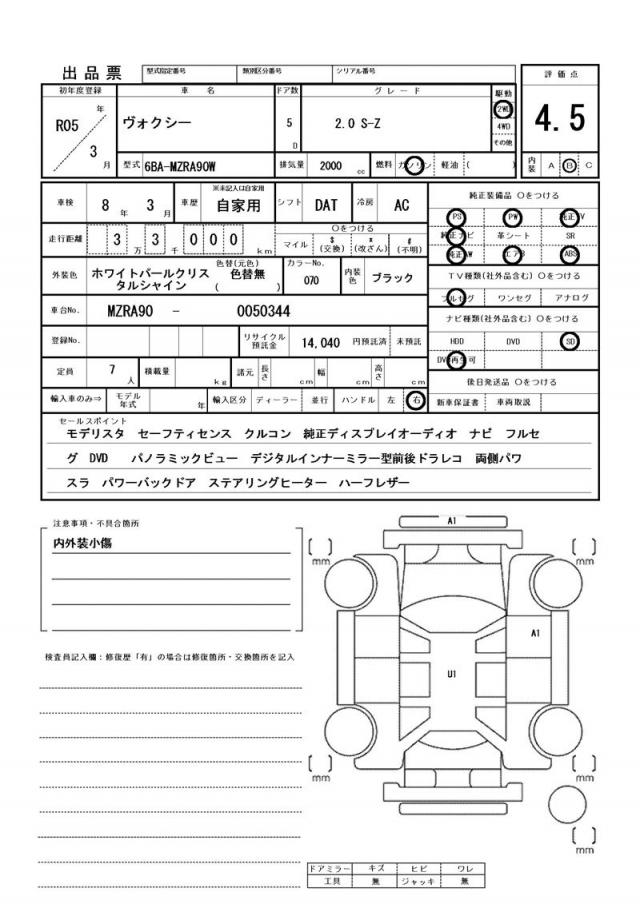 出品票 型式指定番号 類別区分番号 シリアル番号 評価点
初年度登録 車名 ドア数 グレード 駆動
R05 年 3 月 ヴォクシー 5 D 2.0 S-Z 2WD 4WD その他 4.5
型式 6BA-MZRA90W 排気量 2000 cc 燃料 ガソリン 軽油 ( ) 内装 A B C
車検 8 年 3 月 車歴 ※未記入は自家用 自家用 シフト DAT 冷房 AC 純正装備品 ○をつける
PS PW 純正TV
走行距離 3 万 3 千 0 0 0 km ○をつける マイル $ (交換) x (改ざん) # (不明) 純正ナビ 革シート SR
純正AW エアB ABS
外装色 ホワイトパールクリスタルシャイン 色替(元色) 色替無 ( ) カラーNo. 070 内装色 ブラック TV種類(社外品含む) ○をつける
フルセグ ワンセグ アナログ
車台No. MZRA90 - 0050344 ナビ種類(社外品含む) ○をつける
登録No. リサイクル預託金 14,040 円預託済 未預託 HDD DVD SD
DVD再生可
定員 7 人 積載量 kg 諸元 長さ cm 幅 cm 高さ cm 後日発送品 ○をつける
輸入車のみ⇒ モデル年式 年 輸入区分 ディーラー 並行 ハンドル 左 右 新車保証書 車両取説
セールスポイント
モデリスタ セーフティセンス クルコン 純正ディスプレイオーディオ ナビ フルセ
グ DVD パノラミックビュー デジタルインナーミラー型前後ドラレコ 両側パワ
スラ パワーバックドア ステアリングヒーター ハーフレザー
注意事項・不具合箇所
内外装小傷
A1
[ ] mm [ ] mm
A1
検査員記入欄：修復歴「有」の場合は修復箇所・交換箇所を記入
U1
[ ] mm [ ] mm
[ ] mm
ドアミラー キズ ヒビ ワレ
工具 無 ジャッキ 無